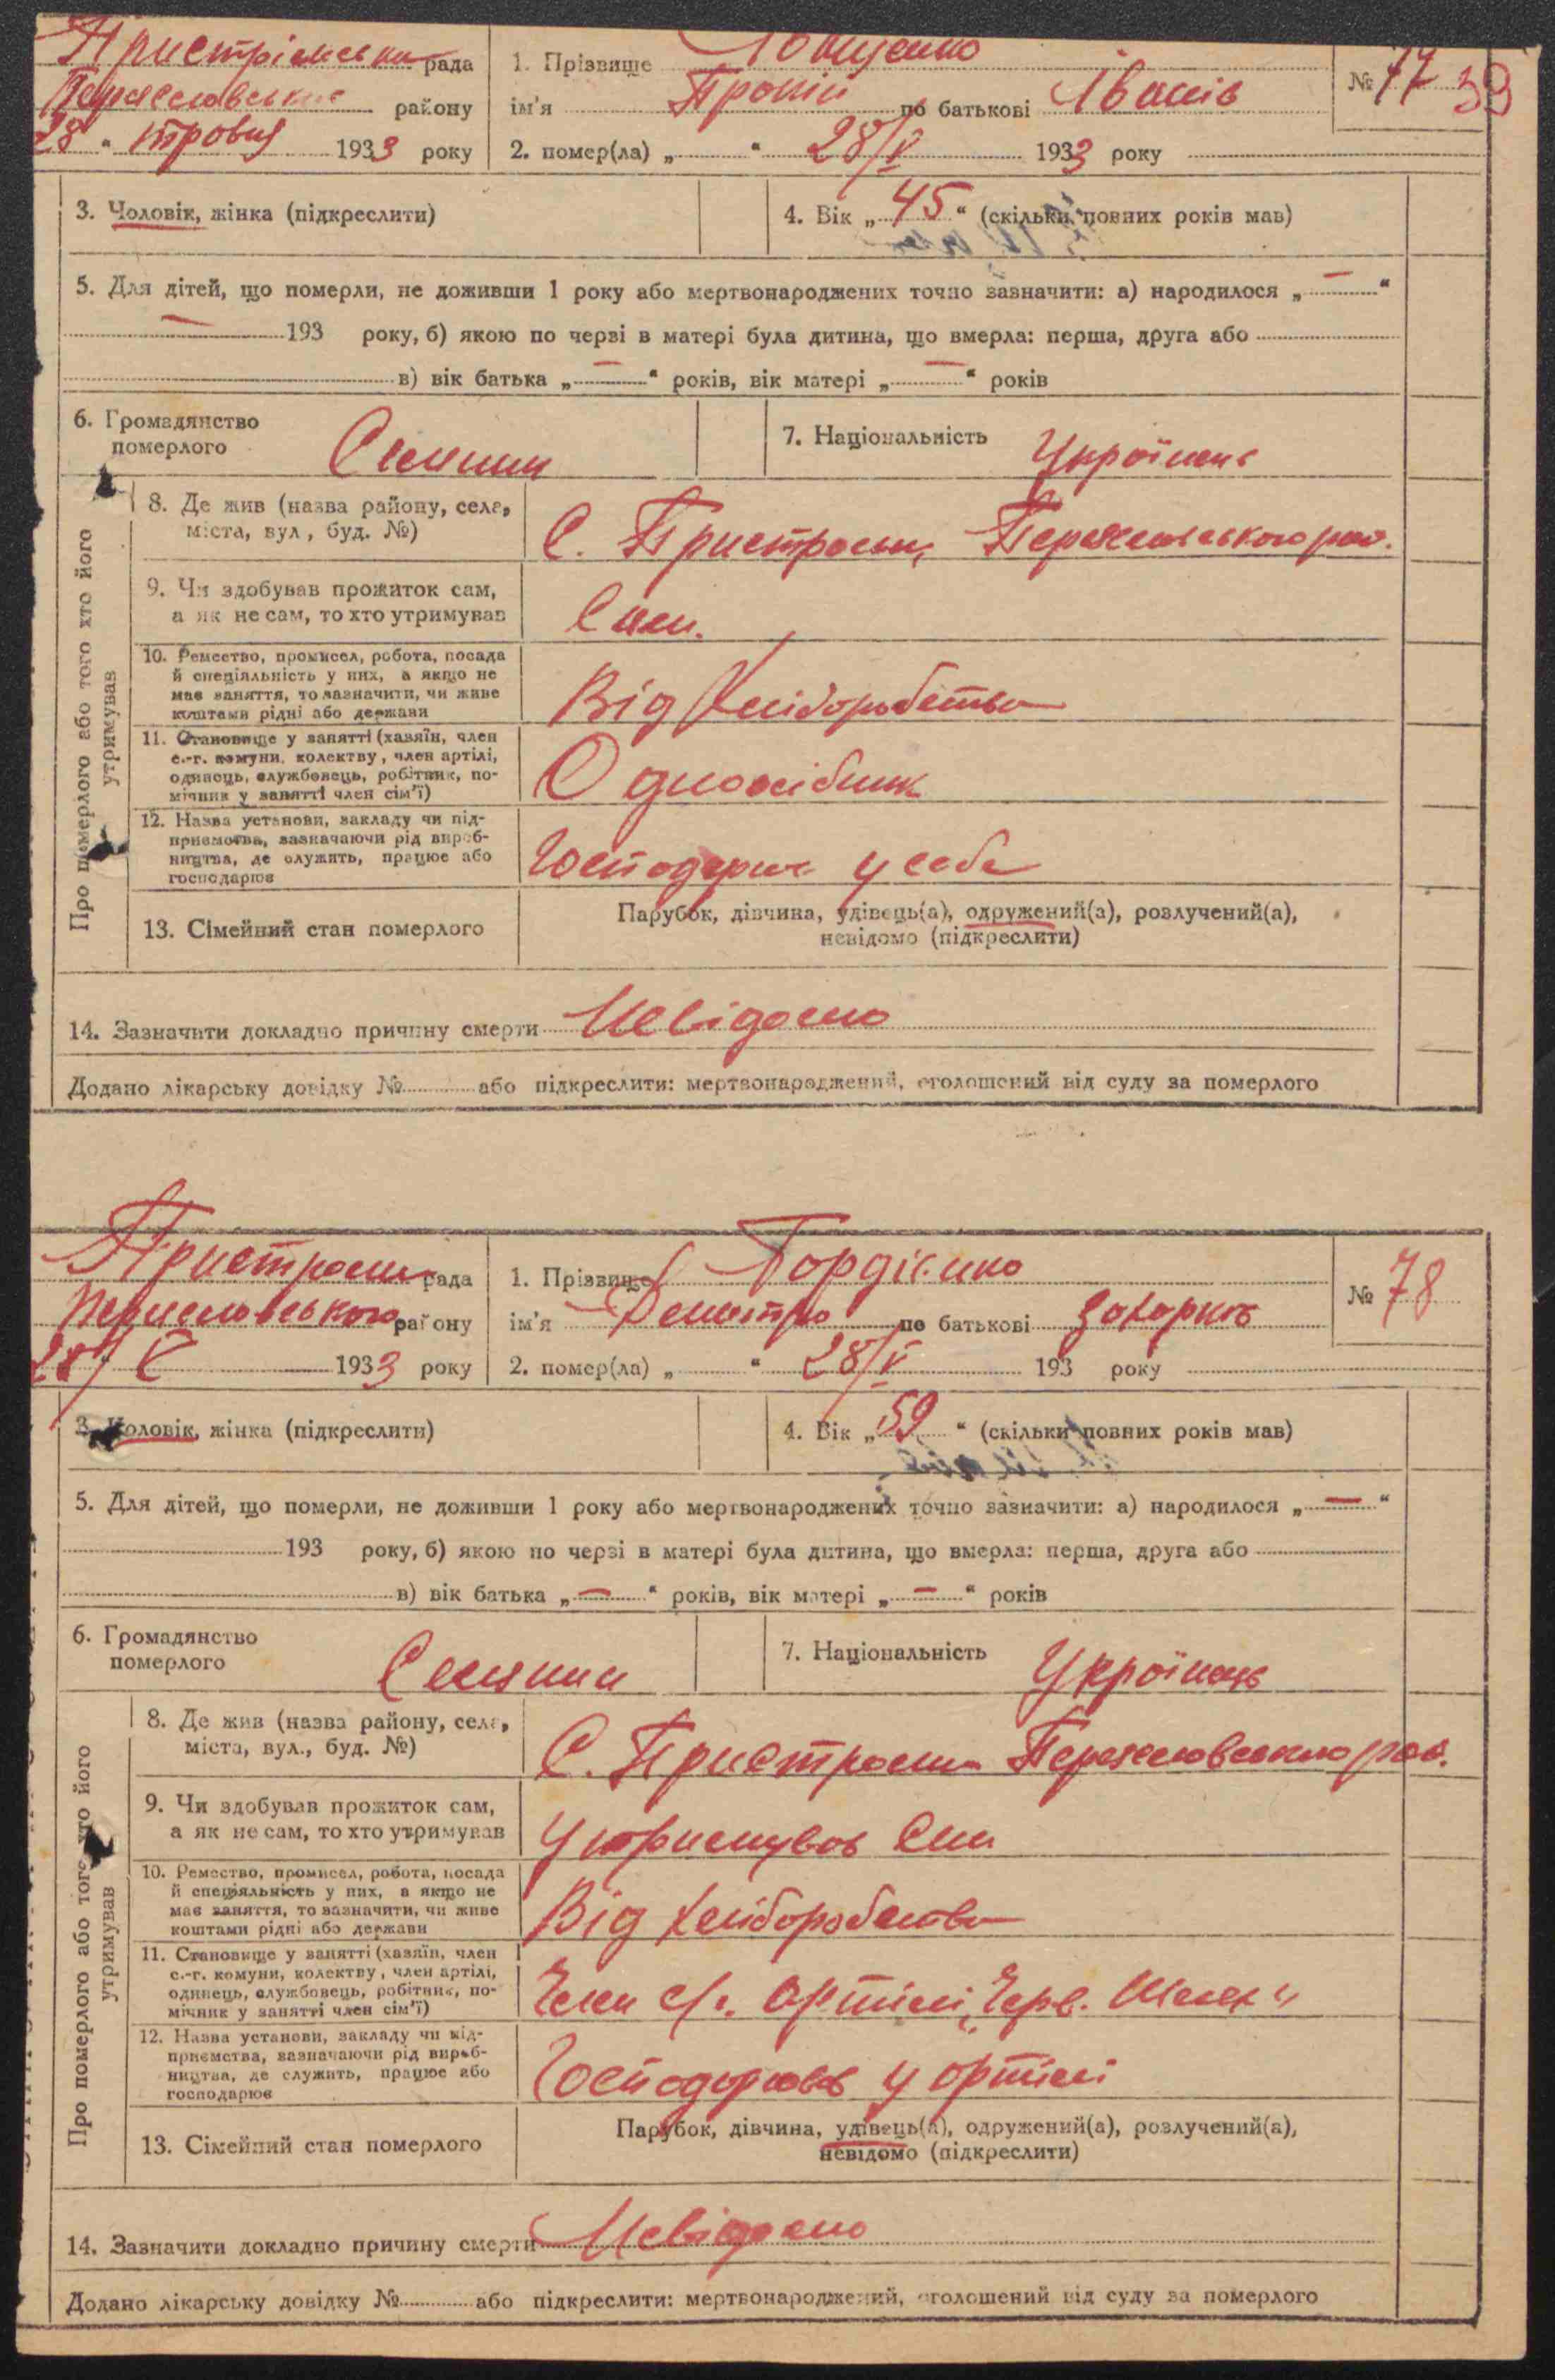 Пристрімська рада
Переяславське району
28 " травня 1933 року
1. Прізвище Ющенко
ім'я Прокіп по батькові Іванів
2. помер(ла) „ “ 28/V 1933 року
№ 77 39
3. Чоловік, жінка (підкреслити)
4. Вік „ 45 “ (скільки повних років мав)
5. Для дітей, що померли, не доживши 1 року або мертвонароджених точно зазначити: а) народилося „ — “
— 193 року, б) якою по черзі в матері була дитина, що вмерла: перша, друга або
в) вік батька „ — “ років, вік матері „ — “ років
6. Громадянство
померлого Селянин
7. Національність Українець
Про померлого або того хто його
утримував
8. Де жив (назва району, села,
міста, вул., буд. №)
С. Пристроми, Переяславського рай.
9. Чи здобував прожиток сам,
а як не сам, то хто утримував
Сам.
10. Ремество, промисел, робота, посада
й спеціяльність у них, а якщо не
має заняття, то зазначити, чи живе
коштами рідні або держави
Від Хліборобства
11. Становище у занятті (хазяїн, член
с.-г. комуни, колектву, член артілі,
одинець, службовець, робітник, по-
мічник у занятті член сім'ї)
Одноосібник
12. Назва установи, закладу чи під-
приємства, зазначаючи рід вироб-
ництва, де служить, працює або
господарює
Господарює у себе
13. Сімейний стан померлого
Парубок, дівчина, удівець(а), одружений(а), розлучений(а),
невідомо (підкреслити)
14. Зазначити докладно причину смерти Невідомо
Додано лікарську довідку № або підкреслити: мертвонароджений, оголошений від суду за померлого
Пристроми рада
Переяславського району
28/ V 1933 року
1. Прізвище Гордієнко
ім'я Дмитро по батькові Захарків
2. помер(ла) „ “ 28/V 193 року
№ 78
3. Чоловік, жінка (підкреслити)
4. Вік „ 59 “ (скільки повних років мав)
5. Для дітей, що померли, не доживши 1 року або мертвонароджених точно зазначити: а) народилося „ — “
193 року, б) якою по черзі в матері була дитина, що вмерла: перша, друга або
в) вік батька „ — “ років, вік матері „ — “ років
6. Громадянство
померлого Селянин
7. Національність Українець
Про померлого або того хто його
утримував
8. Де жив (назва району, села,
міста, вул., буд. №)
С. Пристроми Переяславського рай.
9. Чи здобував прожиток сам,
а як не сам, то хто утримував
Утримував Син
10. Ремество, промисел, робота, посада
й спеціяльність у них, а якщо не
має заняття, то зазначити, чи живе
коштами рідні або держави
Від хліборобства
11. Становище у занятті (хазяїн, член
с.-г. комуни, колектву, член артілі,
одинець, службовець, робітник, по-
мічник у занятті член сім'ї)
Член с/г. артілі „Черв. Шлях“
12. Назва установи, закладу чи під-
приємства, зазначаючи рід вироб-
ництва, де служить, працює або
господарює
Господарював у артілі
13. Сімейний стан померлого
Парубок, дівчина, удівець(а), одружений(а), розлучений(а),
невідомо (підкреслити)
14. Зазначити докладно причину смерти Невідомо
Додано лікарську довідку № або підкреслити: мертвонароджений, оголошений від суду за померлого